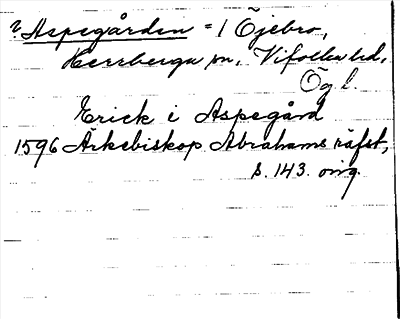 ? Aspegården = 1 Öjebro,
Herrberga sn, Vifolka hd,
Ög l.
Erick i Aspegård
1596 Ärkebiskop Abrahams räfst,
s. 143. orig.